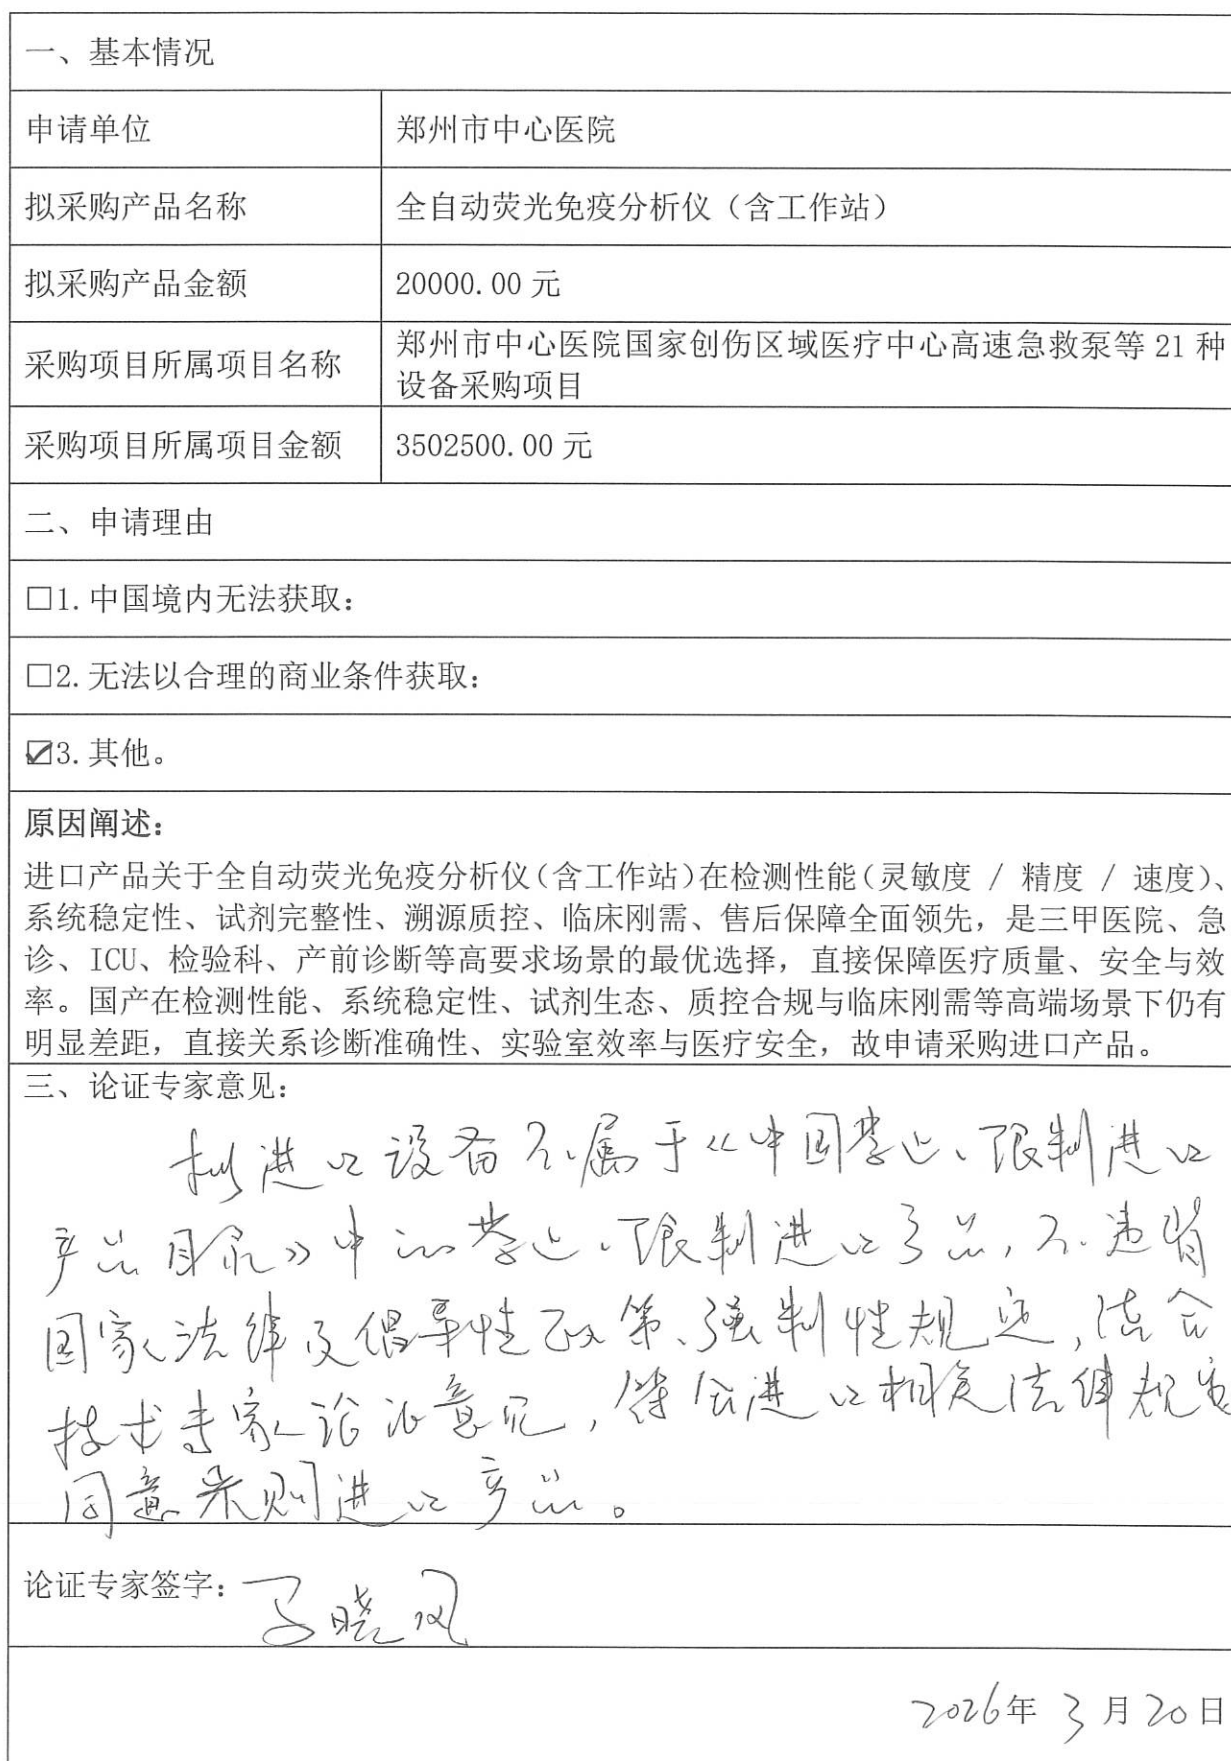 一、基本情况
申请单位
郑州市中心医院
拟采购产品名称
全自动荧光免疫分析仪（含工作站）
拟采购产品金额
20000.00 元
采购项目所属项目名称
郑州市中心医院国家创伤区域医疗中心高速急救泵等 21 种
设备采购项目
采购项目所属项目金额
3502500.00 元
二、申请理由
□1.中国境内无法获取：
□2.无法以合理的商业条件获取：
☑3.其他。
原因阐述：
进口产品关于全自动荧光免疫分析仪（含工作站）在检测性能（灵敏度 / 精度 / 速度）、
系统稳定性、试剂完整性、溯源质控、临床刚需、售后保障全面领先，是三甲医院、急
诊、ICU、检验科、产前诊断等高要求场景的最优选择，直接保障医疗质量、安全与效
率。国产在检测性能、系统稳定性、试剂生态、质控合规与临床刚需等高端场景下仍有
明显差距，直接关系诊断准确性、实验室效率与医疗安全，故申请采购进口产品。
三、论证专家意见：
拟进口设备不属于《中国禁止、限制进口
产品目录》中的禁止、限制进口产品，不违背
国家法律及倡导性政策、强制性规定，结合
技术专家论证意见，符合进口相关法律规定
同意采购进口产品。
论证专家签字：
晓风
2026年 3 月 20日